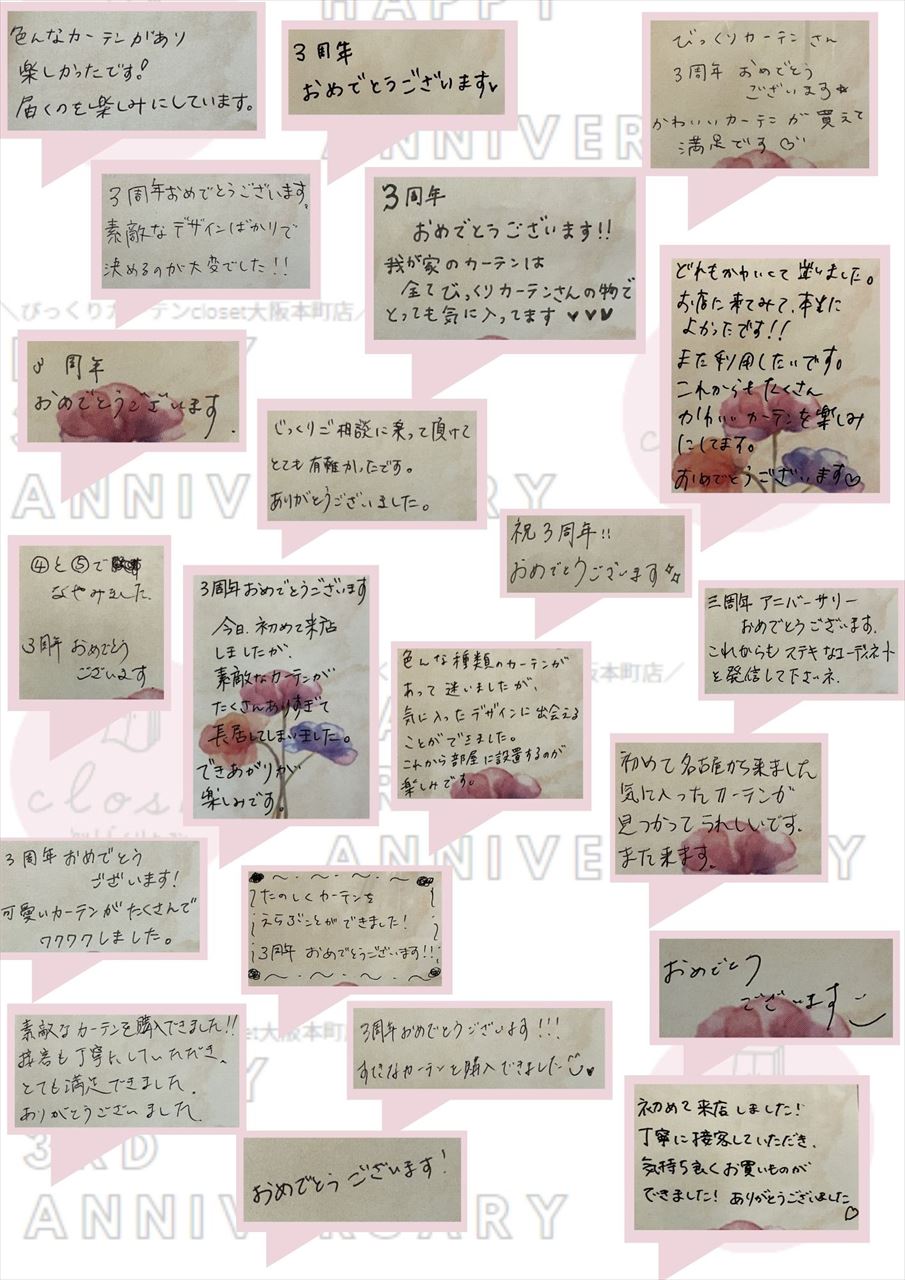 色んなカーテンがあり
楽しかったです!
届くのを楽しみにしています。
3周年
おめでとうございます♥
びっくりカーテンさん
3周年 おめでとう
ございます☆
かわいいカーテンが買えて
満足です♡
3周年おめでとうございます。
素敵なデザインばかりで
決めるのが大変でした!!
3周年
おめでとうございます!!
我が家のカーテンは
全てびっくりカーテンさんの物で
とっても気に入ってます ♥♥♥
どれもかわいくて迷いました。
お店に来てみて、本当に
よかったです!!
また利用したいです。
これからもたくさん
かわいいカーテンを楽しみ
にしてます。
おめでとうございます♡
3周年
おめでとうございます.
じっくりご相談に乗って頂けて
とても有難かったです。
ありがとうございました。
祝3周年!!
おめでとうございます
④と⑤で
なやみました.
3周年 おめでとう
ございます
3周年おめでとうございます
今日、初めて来店
しましたが、
素敵なカーテンが
たくさんありすぎて
長居してしまいました。
できあがりが
楽しみです。
色んな種類のカーテンが
あって迷いましたが、
気に入ったデザインに出会える
ことができました。
これから部屋に設置するのが
楽しみです。
三周年 アニバーサリー
おめでとうございます.
これからも ステキなコーディネート
を発信して下さいネ.
初めて名古屋から来ました
気に入ったカーテンが
見つかってうれしいです.
また来ます.
3周年おめでとう
ございます!
可愛いカーテンがたくさんで
ワクワクしました。
たのしくカーテンを
えらぶことができました!
3周年 おめでとうございます!!
おめでとう
ございます
素敵なカーテンを購入できました!!
接客も丁寧にしていただき、
とても満足できました.
ありがとうございました
3周年おめでとうございます!!!
すてきなカーテンを購入できました♥
おめでとうございます!
初めて来店しました!
丁寧に接客していただき、
気持ち良くお買いものが
できました! ありがとうございました♡
HAPPY
ANNIVER
\びっくりカーテンcloset大阪本町店/
ANNIVERSARY
closet
ANNIVERSARY
3RD
ANNIVERSARY